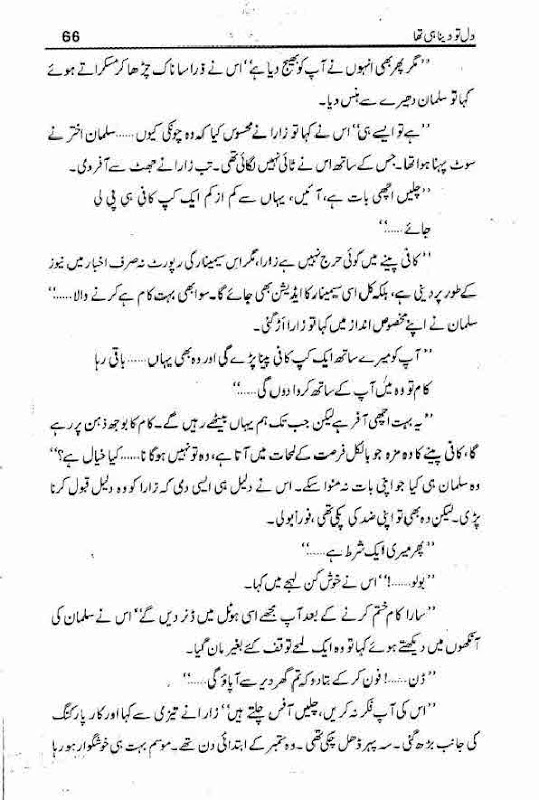 66
دل تو دینا ہی تھا
’’مگر پھر بھی انہوں نے آپ کو بھیج دیا ہے‘‘ اس نے ذرا سا ناک چڑھا کر مسکراتے ہوئے
کہا تو سلمان دھیرے سے ہنس دیا۔
’’ہے تو ایسے ہی‘‘ اس نے کہا تو زارا نے محسوس کیا کہ وہ چونکی کیوں...... سلمان اختر نے
سوٹ پہنا ہوا تھا۔ جس کے ساتھ اس نے ٹائی نہیں لگائی تھی۔ تب زارا نے جھٹ سے آفر دی۔
’’چلیں اچھی بات ہے، آئیں، یہاں سے کم از کم ایک کپ کافی ہی پی لی
جائے......‘‘
’’کافی پینے میں کوئی حرج نہیں ہے زارا، مگر اس سیمینار کی رپورٹ نہ صرف اخبار میں نیوز
کے طور پر دینی ہے، بلکہ کل اسی سیمینار کا ایڈیشن بھی جائے گا۔ سو ابھی بہت کام ہے کرنے والا......‘‘
سلمان نے اپنے مخصوص انداز میں کہا تو زارا اڑ گئی۔
’’آپ کو میرے ساتھ ایک کپ کافی پینا پڑے گی اور وہ بھی یہاں...... باقی رہا
کام تو وہ میں آپ کے ساتھ کروا دوں گی......‘‘
’’یہ بہت اچھی آفر ہے لیکن جب تک ہم یہاں بیٹھے رہیں گے۔ کام کا بوجھ ذہن پر رہے
گا، کافی پینے کا وہ مزہ جو بالکل فرصت کے لمحات میں آتا ہے، وہ تو نہیں ہوگا نا...... کیا خیال ہے؟‘‘
وہ سلمان ہی کیا جو اپنی بات نہ منوا سکے۔ اس نے دلیل ہی ایسی دی کہ زارا کو وہ دلیل قبول کرنا
پڑی۔ لیکن وہ بھی تو اپنی ضد کی پکی تھی، فوراً بولی۔
’’پھر میری ایک شرط ہے......‘‘
’’بولو......!‘‘ اس نے خوش کن لہجے میں کہا۔
’’سارا کام ختم کرنے کے بعد آپ مجھے اسی ہوٹل میں ڈنر دیں گے‘‘ اس نے سلمان کی
آنکھوں میں دیکھتے ہوئے کہا تو وہ ایک لمحے توقف کئے بغیر مان گیا۔
’’ڈن......! فون کر کے بتا دو کہ تم گھر دیر سے آ پاؤ گی......‘‘
’’اس کی آپ فکر نہ کریں، چلیں آفس چلتے ہیں‘‘ زارا نے تیزی سے کہا اور کار پارکنگ
کی جانب بڑھ گئی۔ سہ پہر ڈھل چکی تھی۔ وہ ستمبر کے ابتدائی دن تھے۔ موسم بہت ہی خوشگوار ہو رہا